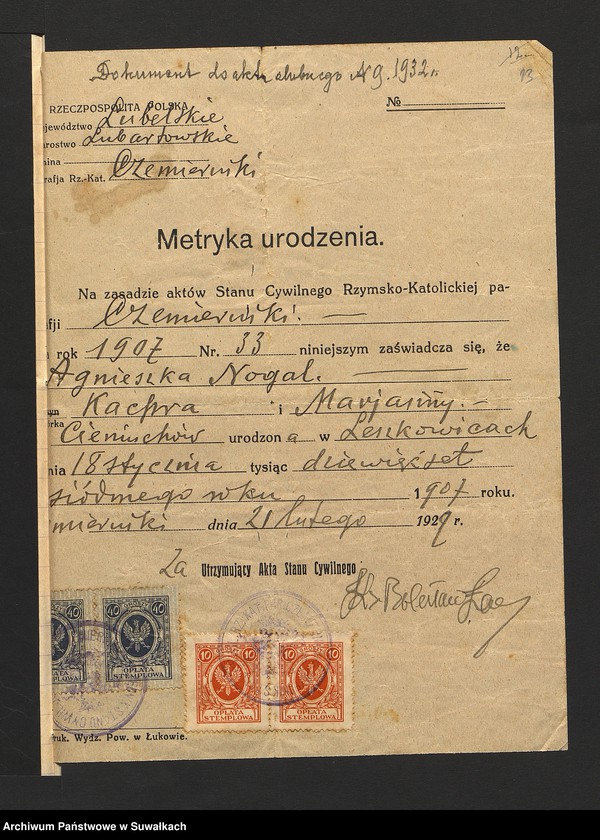 12
13
Dokument do aktu ślubnego N 9. 1932 r.
RZECZPOSPOLITA POLSKA
№
ojewództwo Lubelskie
arostwo Lubartowskie
mina
arafja Rz.-Kat. Czemierniki
Metryka urodzenia.
Na zasadzie aktów Stanu Cywilnego Rzymsko-Katolickiej pa-
afji Czemierniki. —
a rok 1907 Nr. 33 niniejszym zaświadcza się, że
Agnieszka Nogal. —
yn Kacpra i Marjanny. —
órka
Cieniuchów urodzona w Leszkowicach
nia 18 stycznia tysiąc dziewięćset
siódmego roku 1907 roku.
mierniki dnia 21 lutego 1929 r.
Za Utrzymujący Akta Stanu Cywilnego:
Ks Bolesław
40 GROSZY 40
OPŁATA
STEMPLOWA
10 GROSZY 10
OPŁATA
STEMPLOWA
10 GROSZY 10
OPŁATA
STEMPLOWA
ruk. Wydz. Pow. w Łukowie.
Archiwum Państwowe w Suwałkach